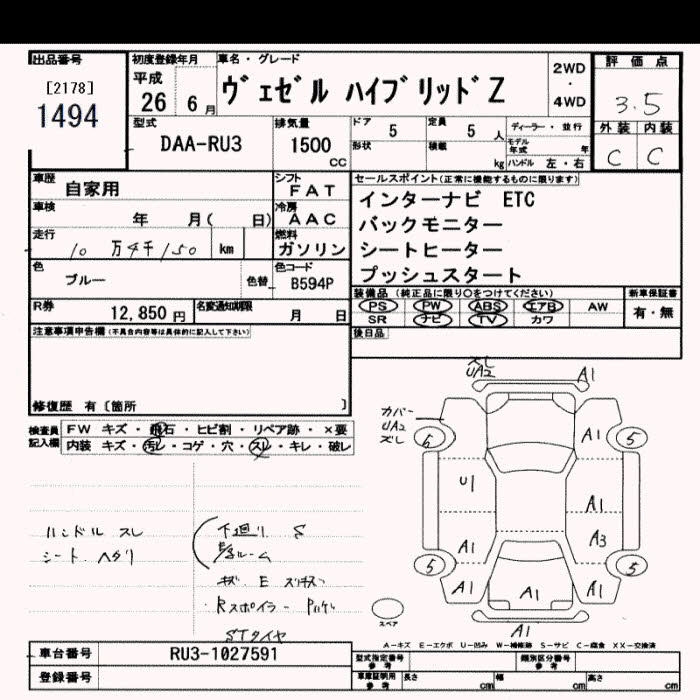 出品番号
[2178]
1494
初度登録年月
平成
26 6 月
車名・グレード
ヴェゼル ハイブリッドZ
2WD
・
4WD
評価点
3.5
外装 内装
C C
型式
DAA-RU3
排気量
1500 CC
ドア 5
定員 5 人
ディーラー・並行
形状
積載 kg
モデル年式 年
ハンドル 左・右
車歴 自家用
シフト FAT
車検 年 月( 日)
冷房 AAC
走行 10 万 4千 150 km
燃料 ガソリン
色 ブルー 色替
色コード B594P
R券 12,850 円
名変通知期限 月 日
セールスポイント(正常に機能するものに限ります)
インターナビ ETC
バックモニター
シートヒーター
プッシュスタート
装備品(純正品に限り○をつけてください)
PS PW ABS エアB AW
SR ナビ TV カワ
新車保証書
有・無
後日品
注意事項申告欄(不具合内容等は具体的に記入して下さい)
修復歴 有〔箇所 〕
検査員記入欄
FW キズ・飛石・ヒビ割・リペア跡・×要
内装 キズ・汚レ・コゲ・穴・スレ・キレ・破レ
ハンドル スレ
シート ヘタリ
下廻り S
ルーム
キズ E
Rスポイラー
STタイヤ
ズレ
UA2
A1
カバー
UA2
ズレ
6
A1
5
U1
A1
A1
A3
5
5
A1
A1
A1
A1
スペア
A-キズ E-エクボ U-凹み W-補修跡 S-サビ C-腐食 XX-交換済
車台番号 RU3-1027591
登録番号
型式指定番号 参考
類別区分番号 参考
車庫証明用 参考
長さ cm
幅 cm
高さ cm